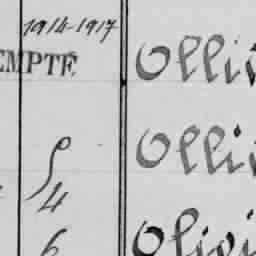 1914-1917
EMPTÉ
Olli
Olli
4
Olivi
6